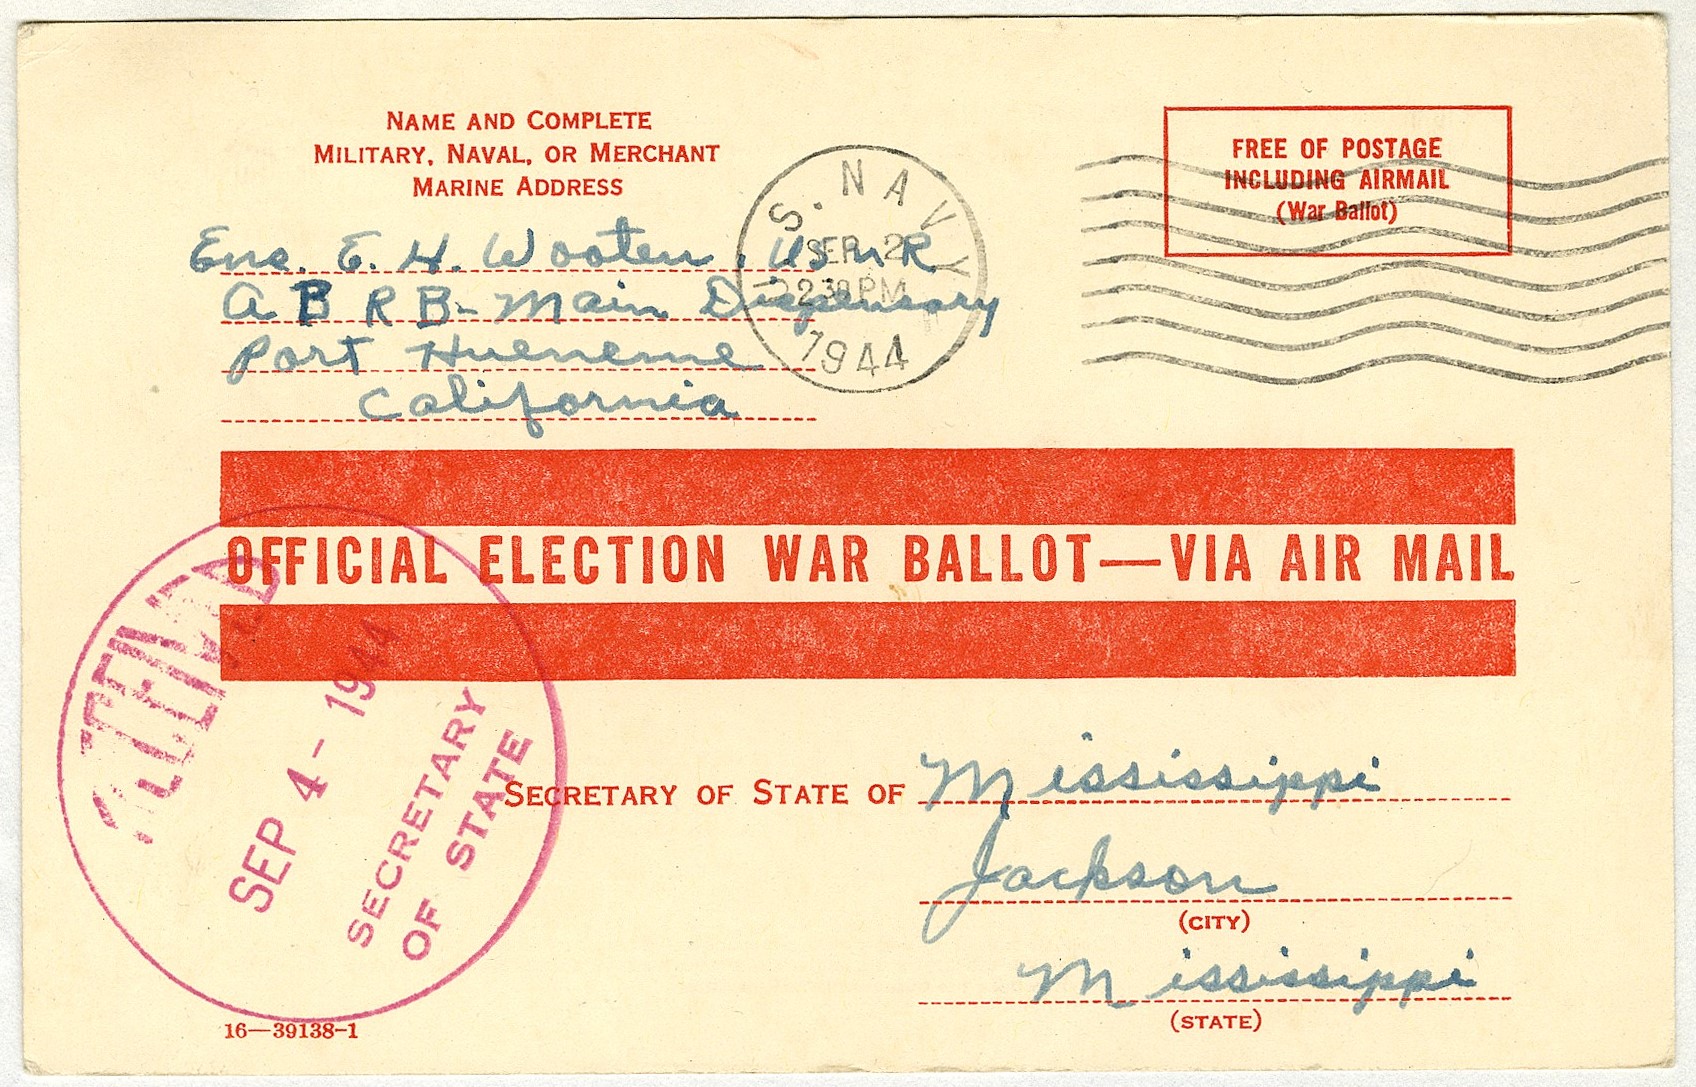 NAME AND COMPLETE
MILITARY, NAVAL, OR MERCHANT
MARINE ADDRESS
Ens. E. H. Wooten, USNR
A B R B - Main Dispensary
Port Hueneme
California
S. NAVY
SEP 2
230 PM
1944
FREE OF POSTAGE
INCLUDING AIRMAIL
(War Ballot)
OFFICIAL ELECTION WAR BALLOT—VIA AIR MAIL
SEP 4 - 1944
SECRETARY
OF STATE
SECRETARY OF STATE OF Mississippi
Jackson
(CITY)
Mississippi
(STATE)
16—39138-1